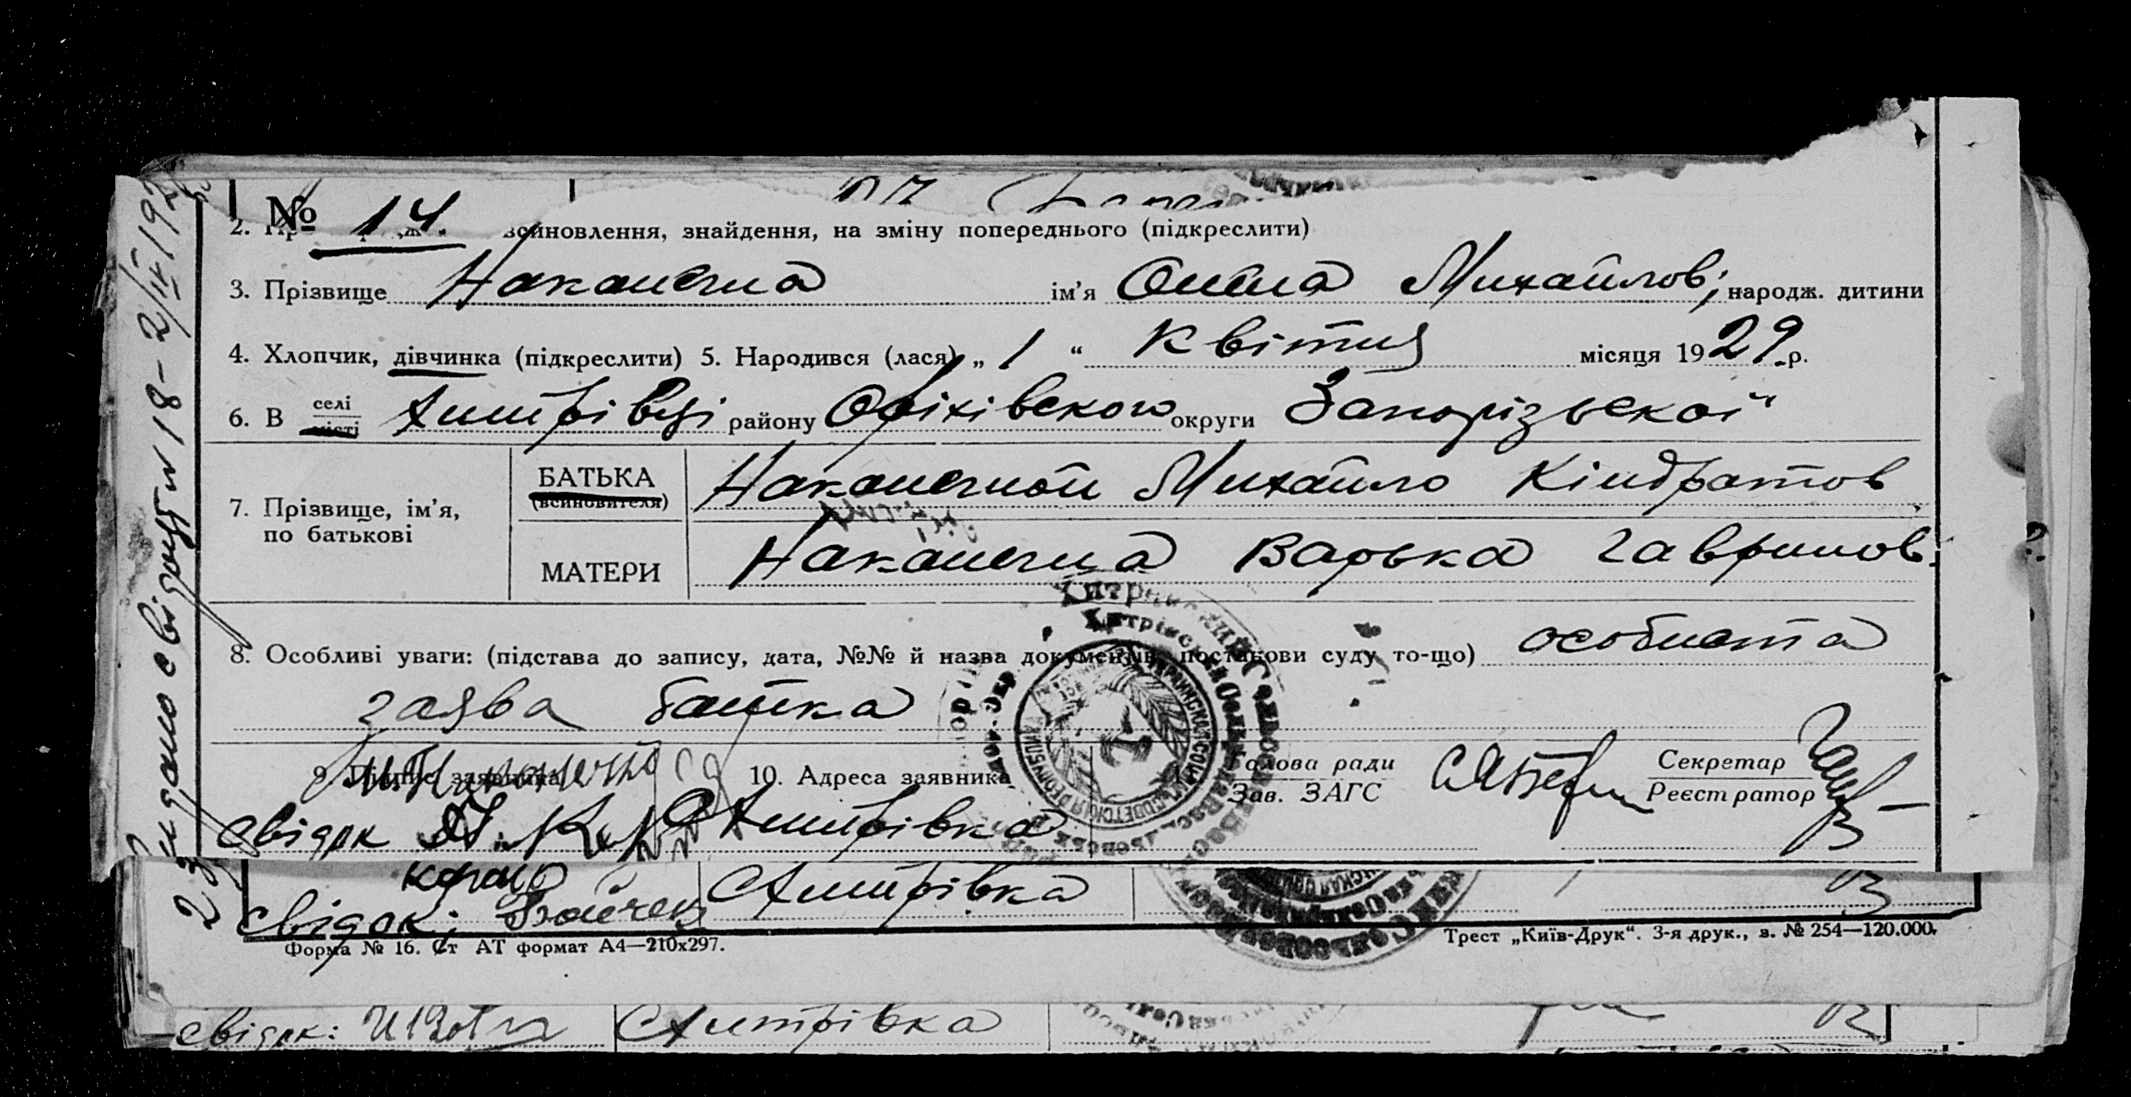 № 14
всиновлення, знайдення, на зміну попереднього (підкреслити)
3. Прізвище Наконечна ім'я Олена Михайлов; народж. дитини
4. Хлопчик, дівчинка (підкреслити) 5. Народився (лася) „ 1 “ Квітня місяця 1929 р.
6. В селі місті Хитрівці району Оріхівского округи Запорізьскої
7. Прізвище, ім'я, по батькові
БАТЬКА (всиновителя) Наконечной Михайло Кіндратов
МАТЕРИ Наконечна Варька Гаврилов.
8. Особливі уваги: (підстава до запису, дата, №№ й назва документів, постанови суду то-що) особиста
заява батька
9. Підпис заявника 10. Адреса заявника Голова ради Зав. ЗАГС Секретар Реєстратор
свідок Хитрівка
свідок: Хитрівка
Форма № 16. Ст АТ формат А4—210х297. Трест „Київ-Друк“. 3-я друк., з. № 254—120.000.
свідок: Хитрівка